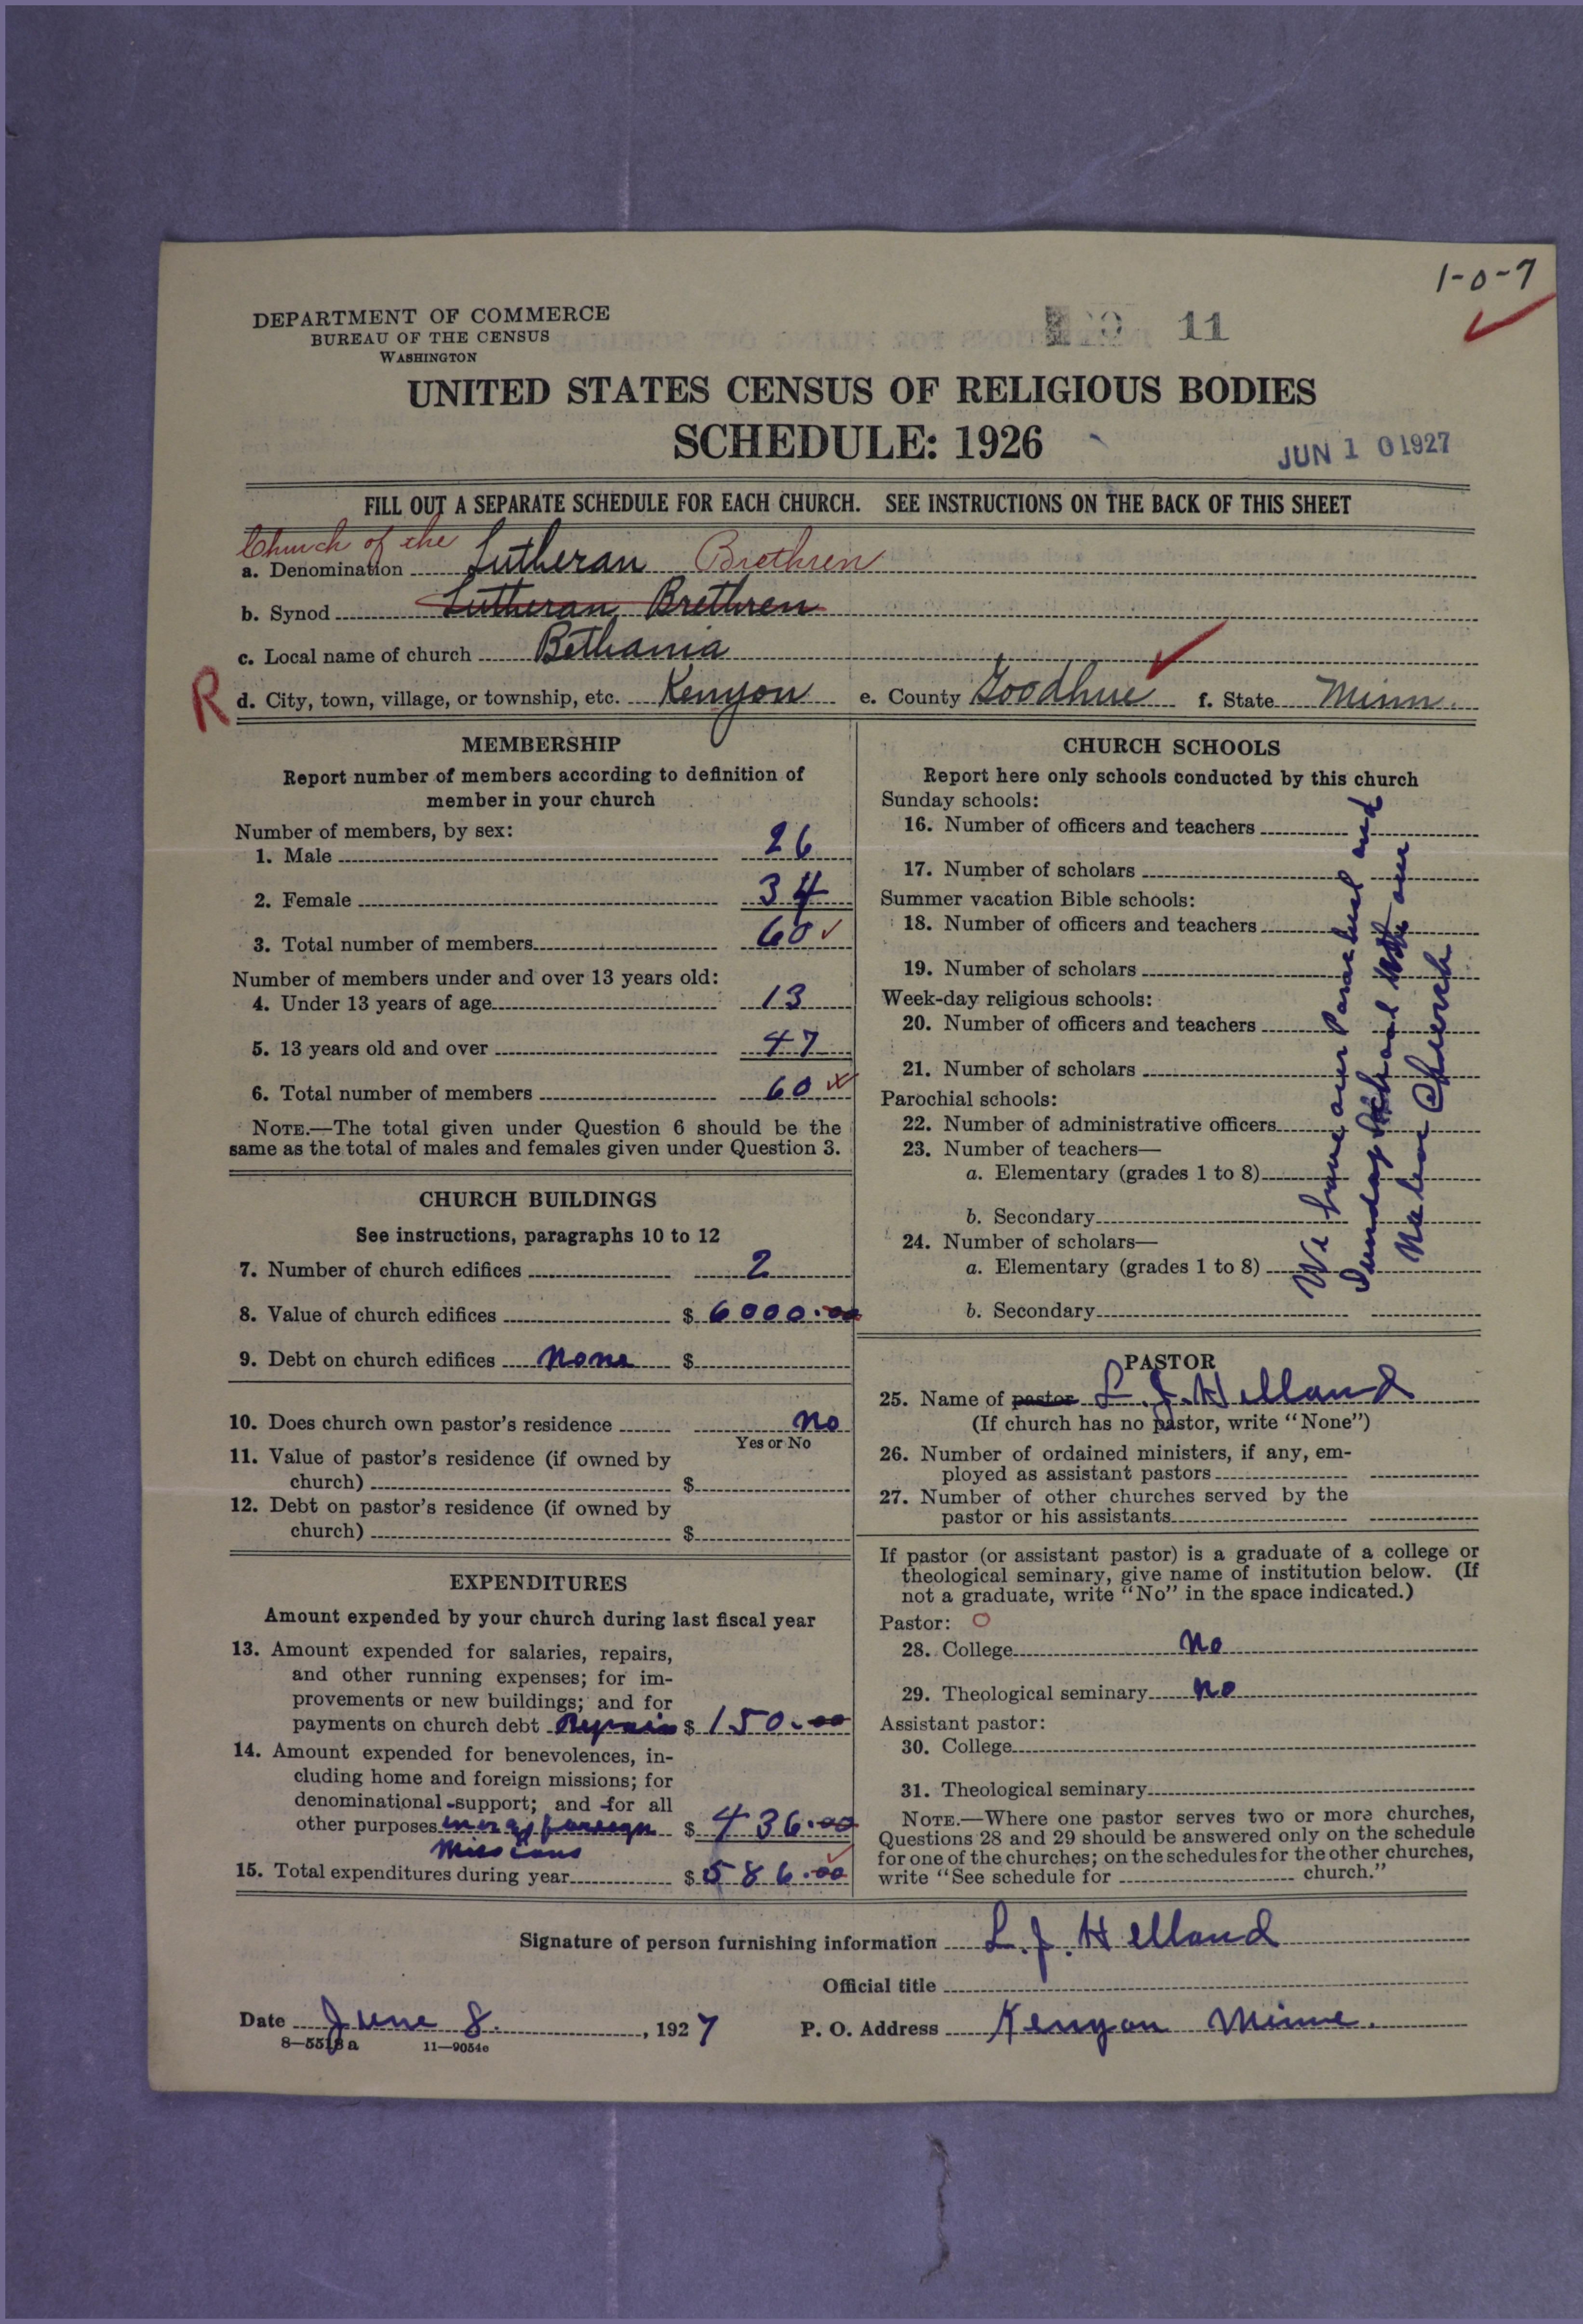 1-0-7
DEPARTMENT OF COMMERCE
BUREAU OF THE CENSUS
WASHINGTON
11
UNITED STATES CENSUS OF RELIGIOUS BODIES
SCHEDULE: 1926
JUN 10 1927
FILL OUT A SEPARATE SCHEDULE FOR EACH CHURCH. SEE INSTRUCTIONS ON THE BACK OF THIS SHEET
Church of the
a. Denomination Lutheran Brethren
b. Synod Lutheran Brethren
c. Local name of church Bethania
R d. City, town, village, or township, etc. Kenyon e. County Goodhue f. State Minn.
MEMBERSHIP
Report number of members according to definition of
member in your church
Number of members, by sex:
1. Male 26
2. Female 34
3. Total number of members 60
Number of members under and over 13 years old:
4. Under 13 years of age 13
5. 13 years old and over 47
6. Total number of members 60
NOTE.—The total given under Question 6 should be the
same as the total of males and females given under Question 3.
CHURCH BUILDINGS
See instructions, paragraphs 10 to 12
7. Number of church edifices 2
8. Value of church edifices $ 6000.00
9. Debt on church edifices None $
10. Does church own pastor's residence No
Yes or No
11. Value of pastor's residence (if owned by
church) $
12. Debt on pastor's residence (if owned by
church) $
EXPENDITURES
Amount expended by your church during last fiscal year
13. Amount expended for salaries, repairs,
and other running expenses; for im-
provements or new buildings; and for
payments on church debt Repairs $ 150.00
14. Amount expended for benevolences, in-
cluding home and foreign missions; for
denominational support; and for all
other purposes foreign $ 436.00
Missions
15. Total expenditures during year $ 586.00
CHURCH SCHOOLS
Report here only schools conducted by this church
Sunday schools:
16. Number of officers and teachers
17. Number of scholars
Summer vacation Bible schools:
18. Number of officers and teachers
19. Number of scholars
Week-day religious schools:
20. Number of officers and teachers
21. Number of scholars
Parochial schools:
22. Number of administrative officers
23. Number of teachers—
a. Elementary (grades 1 to 8)
b. Secondary
24. Number of scholars—
a. Elementary (grades 1 to 8)
b. Secondary
We have our Parochial and
Sunday School with our
Church
PASTOR
25. Name of pastor L. J. Helland
(If church has no pastor, write "None")
26. Number of ordained ministers, if any, em-
ployed as assistant pastors
27. Number of other churches served by the
pastor or his assistants
If pastor (or assistant pastor) is a graduate of a college or
theological seminary, give name of institution below. (If
not a graduate, write "No" in the space indicated.)
Pastor: O
28. College No
29. Theological seminary No
Assistant pastor:
30. College
31. Theological seminary
NOTE.—Where one pastor serves two or more churches,
Questions 28 and 29 should be answered only on the schedule
for one of the churches; on the schedules for the other churches,
write "See schedule for church."
Signature of person furnishing information L. J. Helland
Official title
Date June 8. , 1927 P. O. Address Kenyon Minne.
8—5513 a 11—9054e